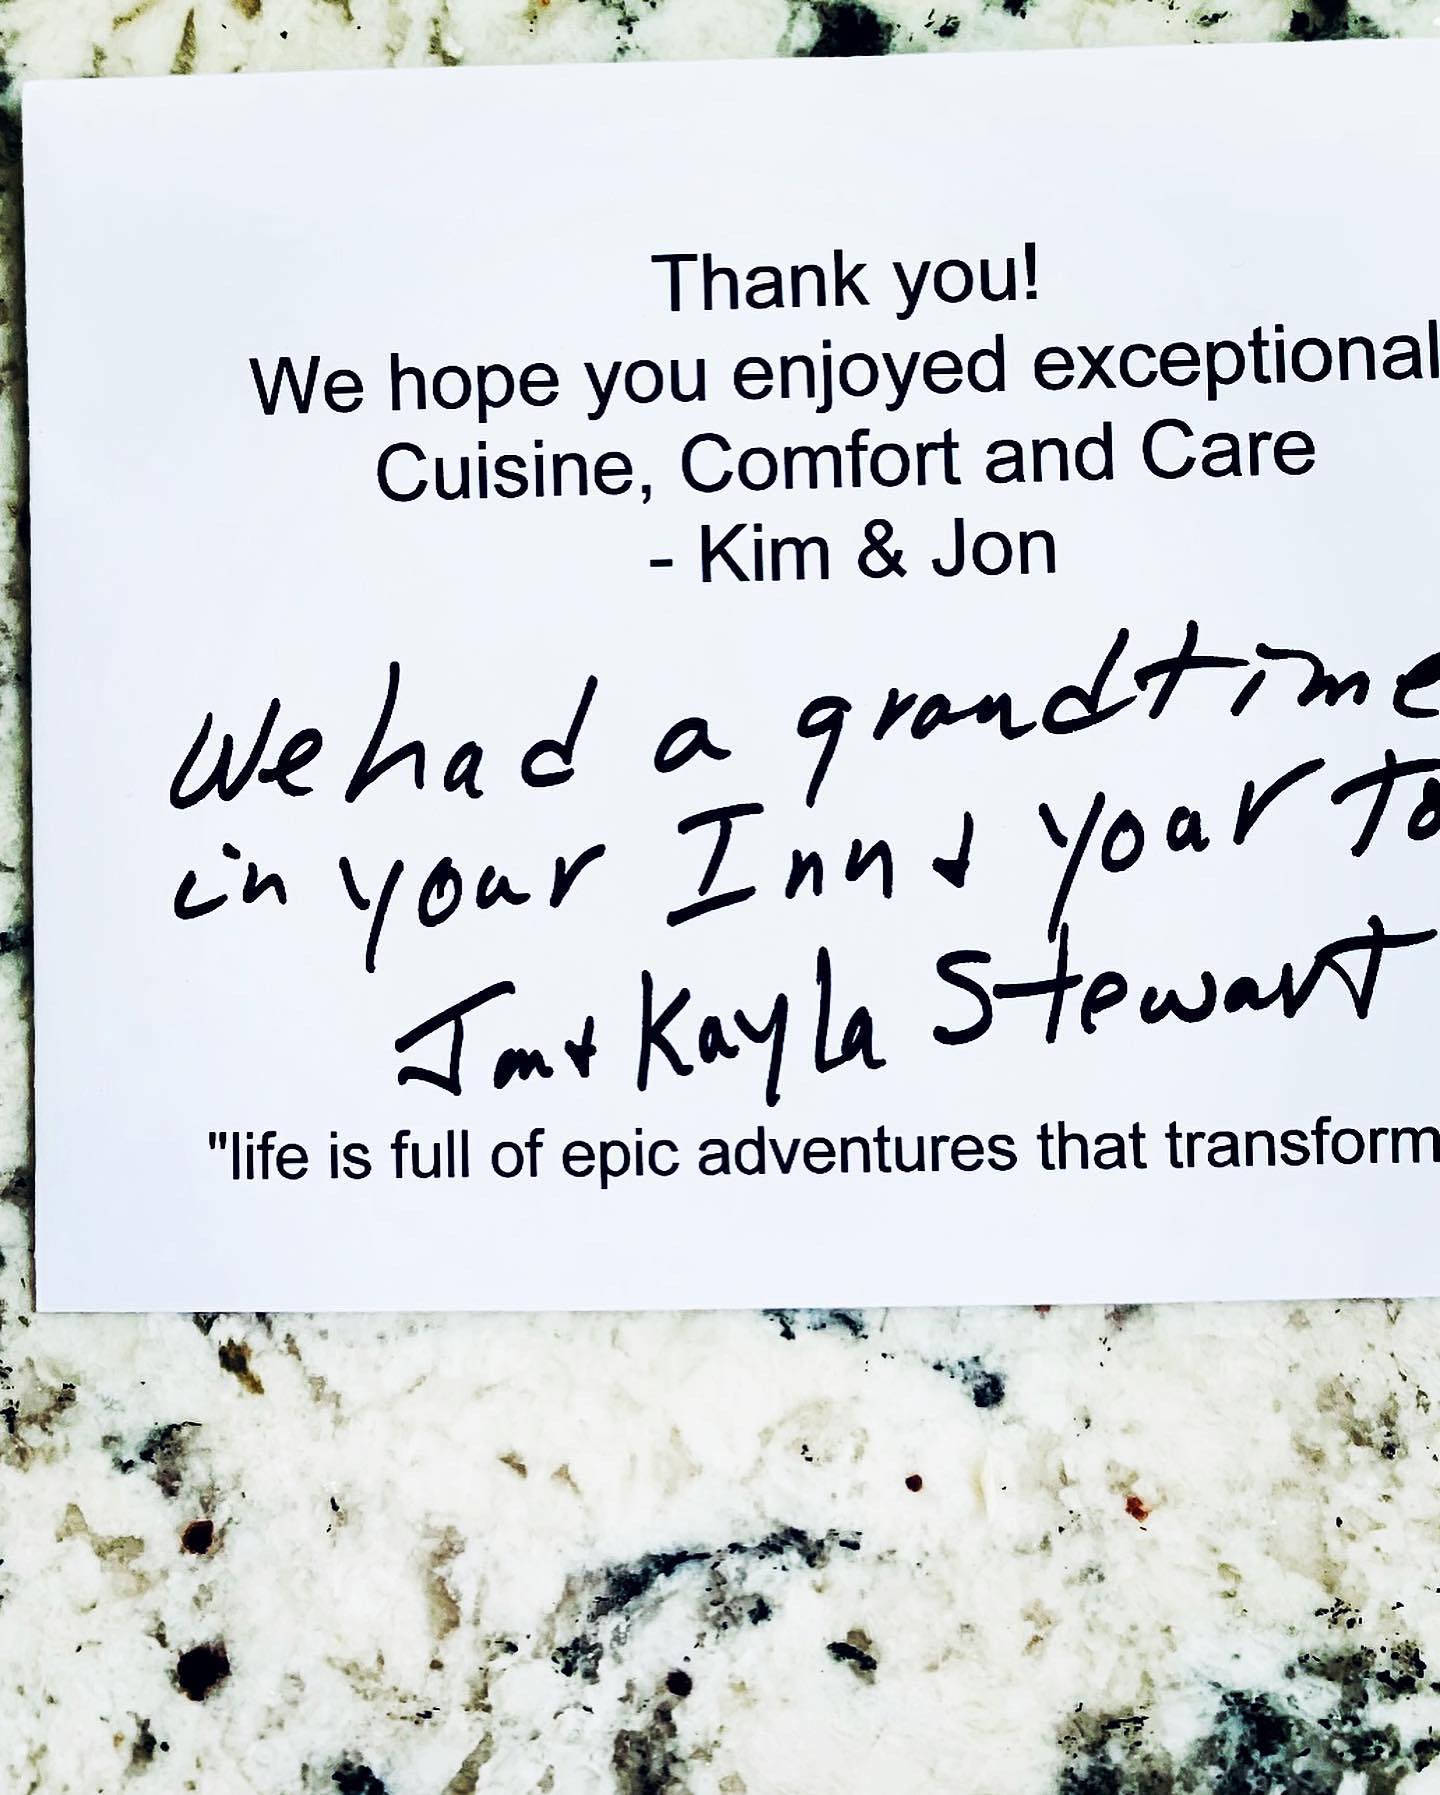 Thank you!
We hope you enjoyed exceptional
Cuisine, Comfort and Care
- Kim & Jon
We had a grand time
in your Inn & your to
Jon & Kayla Stewart
"life is full of epic adventures that transform